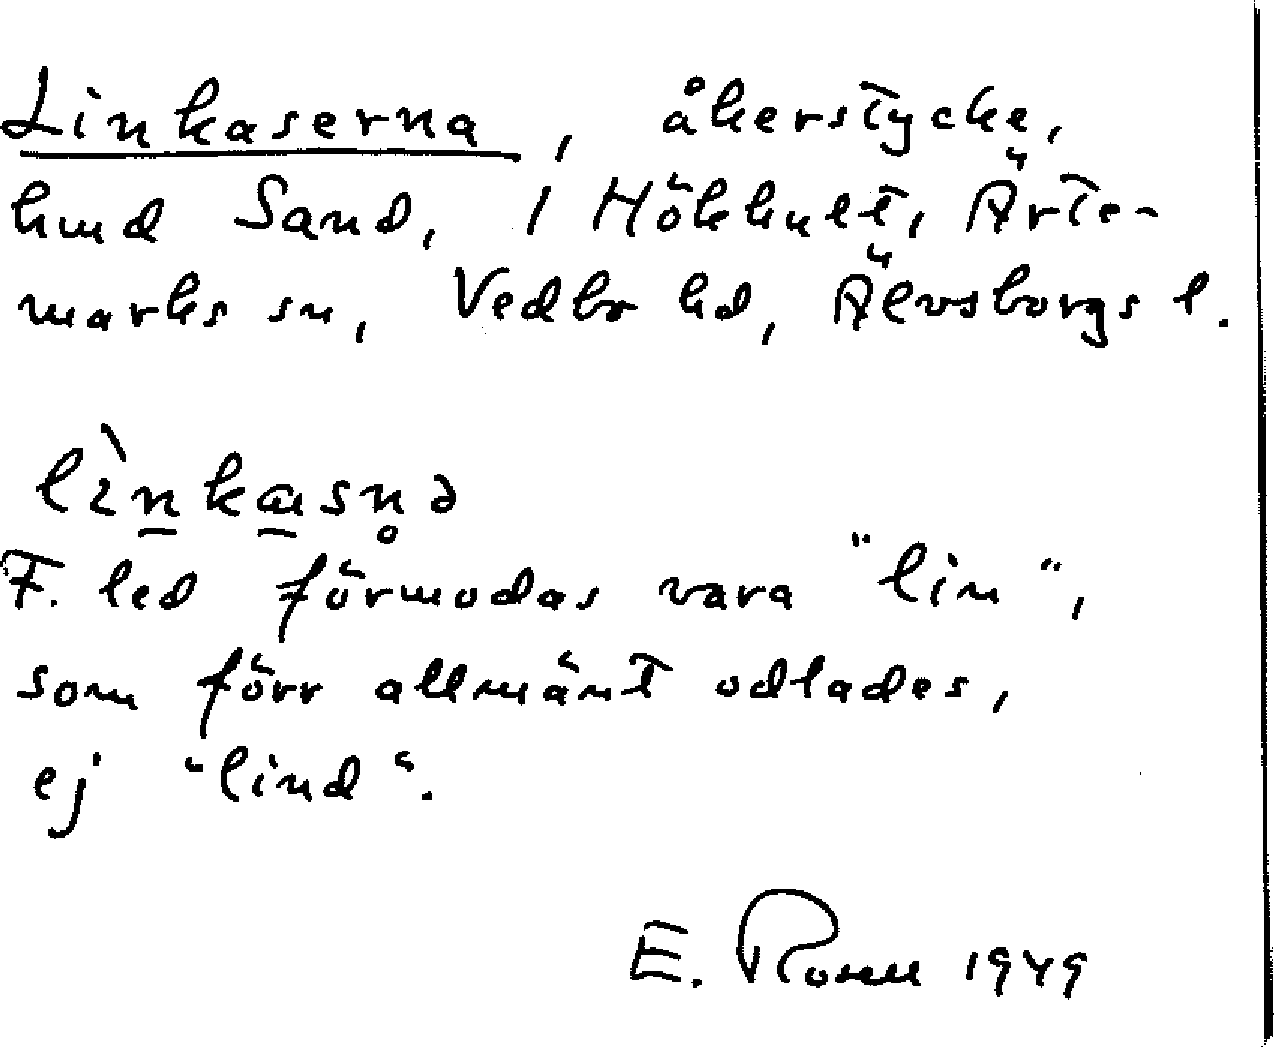 Linkaserna, åkerstycke,
hmd Sand, 1 Hökhult, Ärte-
marks sn, Vedbo hd, Älvsborgs l.
lìnkasnə
F. led förmodas vara "lin",
som förr allmänt odlades,
ej "lind".
E. Rosell 1949